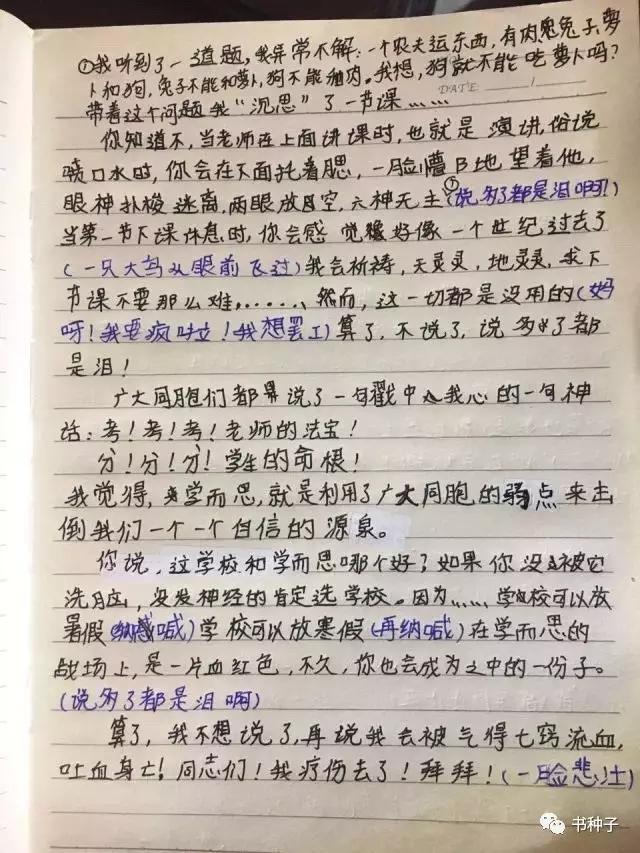 ①我听到了一道题,我异常不解:一个农夫运东西,有肉鬼兔子、萝
卜和狗,兔子不能和萝卜,狗不能和肉。我想,狗就不能吃萝卜吗?
DATE
带着这个问题我“沉思”了一节课……
你知道不,当老师在上面讲课时,也就是演讲,俗说
喷口水时,你会在下面托着腮,一脸懵B地望着他,
眼神扑梭迷离,两眼放空,六神无主①(说多了都是泪啊!)
当第一节下课休息时,你会感觉好像一个世纪过去了
(一只大鸟从眼前飞过)我会祈祷,天灵灵,地灵灵,求下
节课不要那么难,……、然而,这一切都是没用的(妈
呀!我要疯啦!我想罢工)算了,不说了,说多了都
是泪!
广大同胞们都说了一句戳中我心的一句神
话:考!考!考!老师的法宝!
分!分!分!学生的命根!
我觉得,学而思,就是利用了广大同胞的弱点来击
倒我们一个一个自信的源泉。
你说,这学校和学而思哪个好?如果你没被它
洗脑,没发神经的肯定选学校。因为……学校可以放
暑假(呐喊)学校可以放寒假(再纳喊)在学而思的
战场上,是一片血红色,不久,你也会成为之中的一份子。
(说多了都是泪啊)
算了,我不想说了,再说我会被气得七窍流血,
吐血身亡!同志们!我疗伤去了!拜拜!(一脸悲壮)
书种子